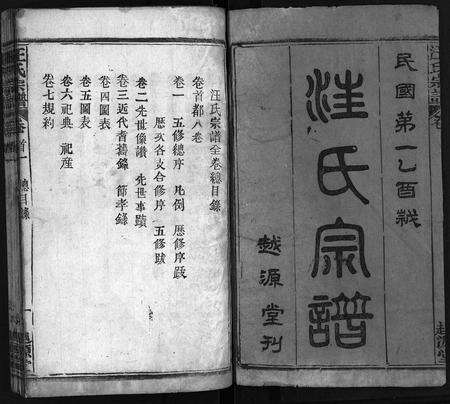 民國第一乙酉栞
汪氏宗譜
越源堂刊
汪氏宗譜全卷總目錄
卷首都八卷
卷一 五修總序 凡例 歷修序跋
歷次各支合修序 五修跋
卷二先世像讚 先世事蹟
卷三近代耆舊錄 節孝錄
卷四圖表
卷五圖表
卷六祀典 祀産
卷七規約
汪氏宗譜 卷首一 總目錄